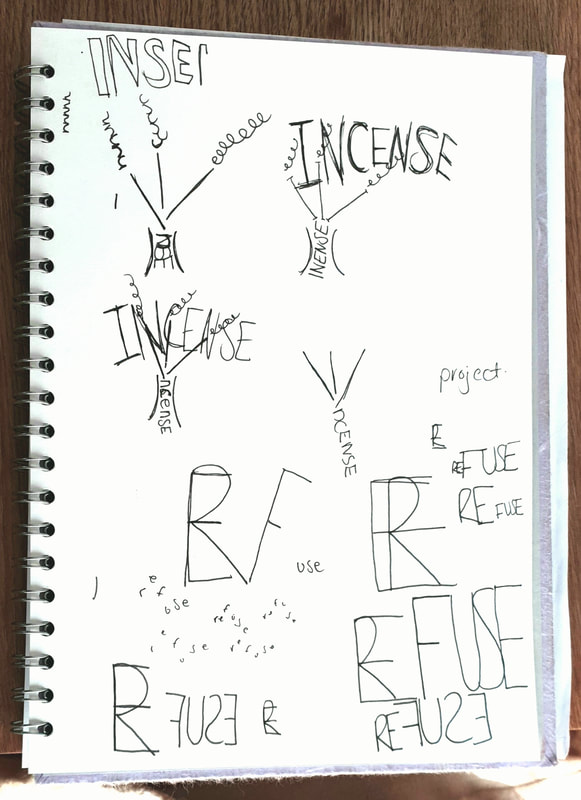 INSEI
INCENSE
INENSE
INCENSE
ncense
project.
NCENSE
RE
REFUSE
REFUSE
RF
use
RE
refuse
refuse
refuse
refuse
refuse
REFUSE
RE FUSE
RE
REFUSE